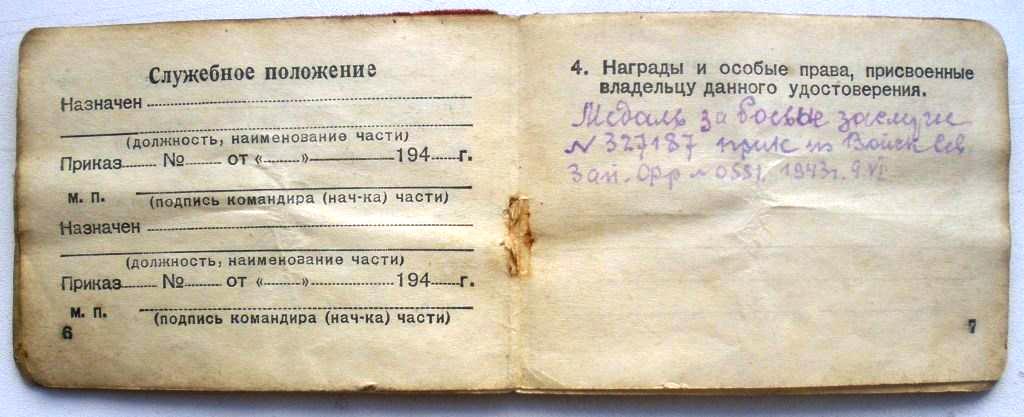 Служебное положение
Назначен
(должность, наименование части)
Приказ № от « » 194 г.
м. п. (подпись командира (нач-ка) части)
Назначен
(должность, наименование части)
Приказ № от « » 194 г.
м. п. (подпись командира (нач-ка) части)
6
4. Награды и особые права, присвоенные
владельцу данного удостоверения.
Медаль за боевые заслуги
N 327187 прик Войск Сев
Зап. Фр N 0581. 1943 г. 9.VI
7